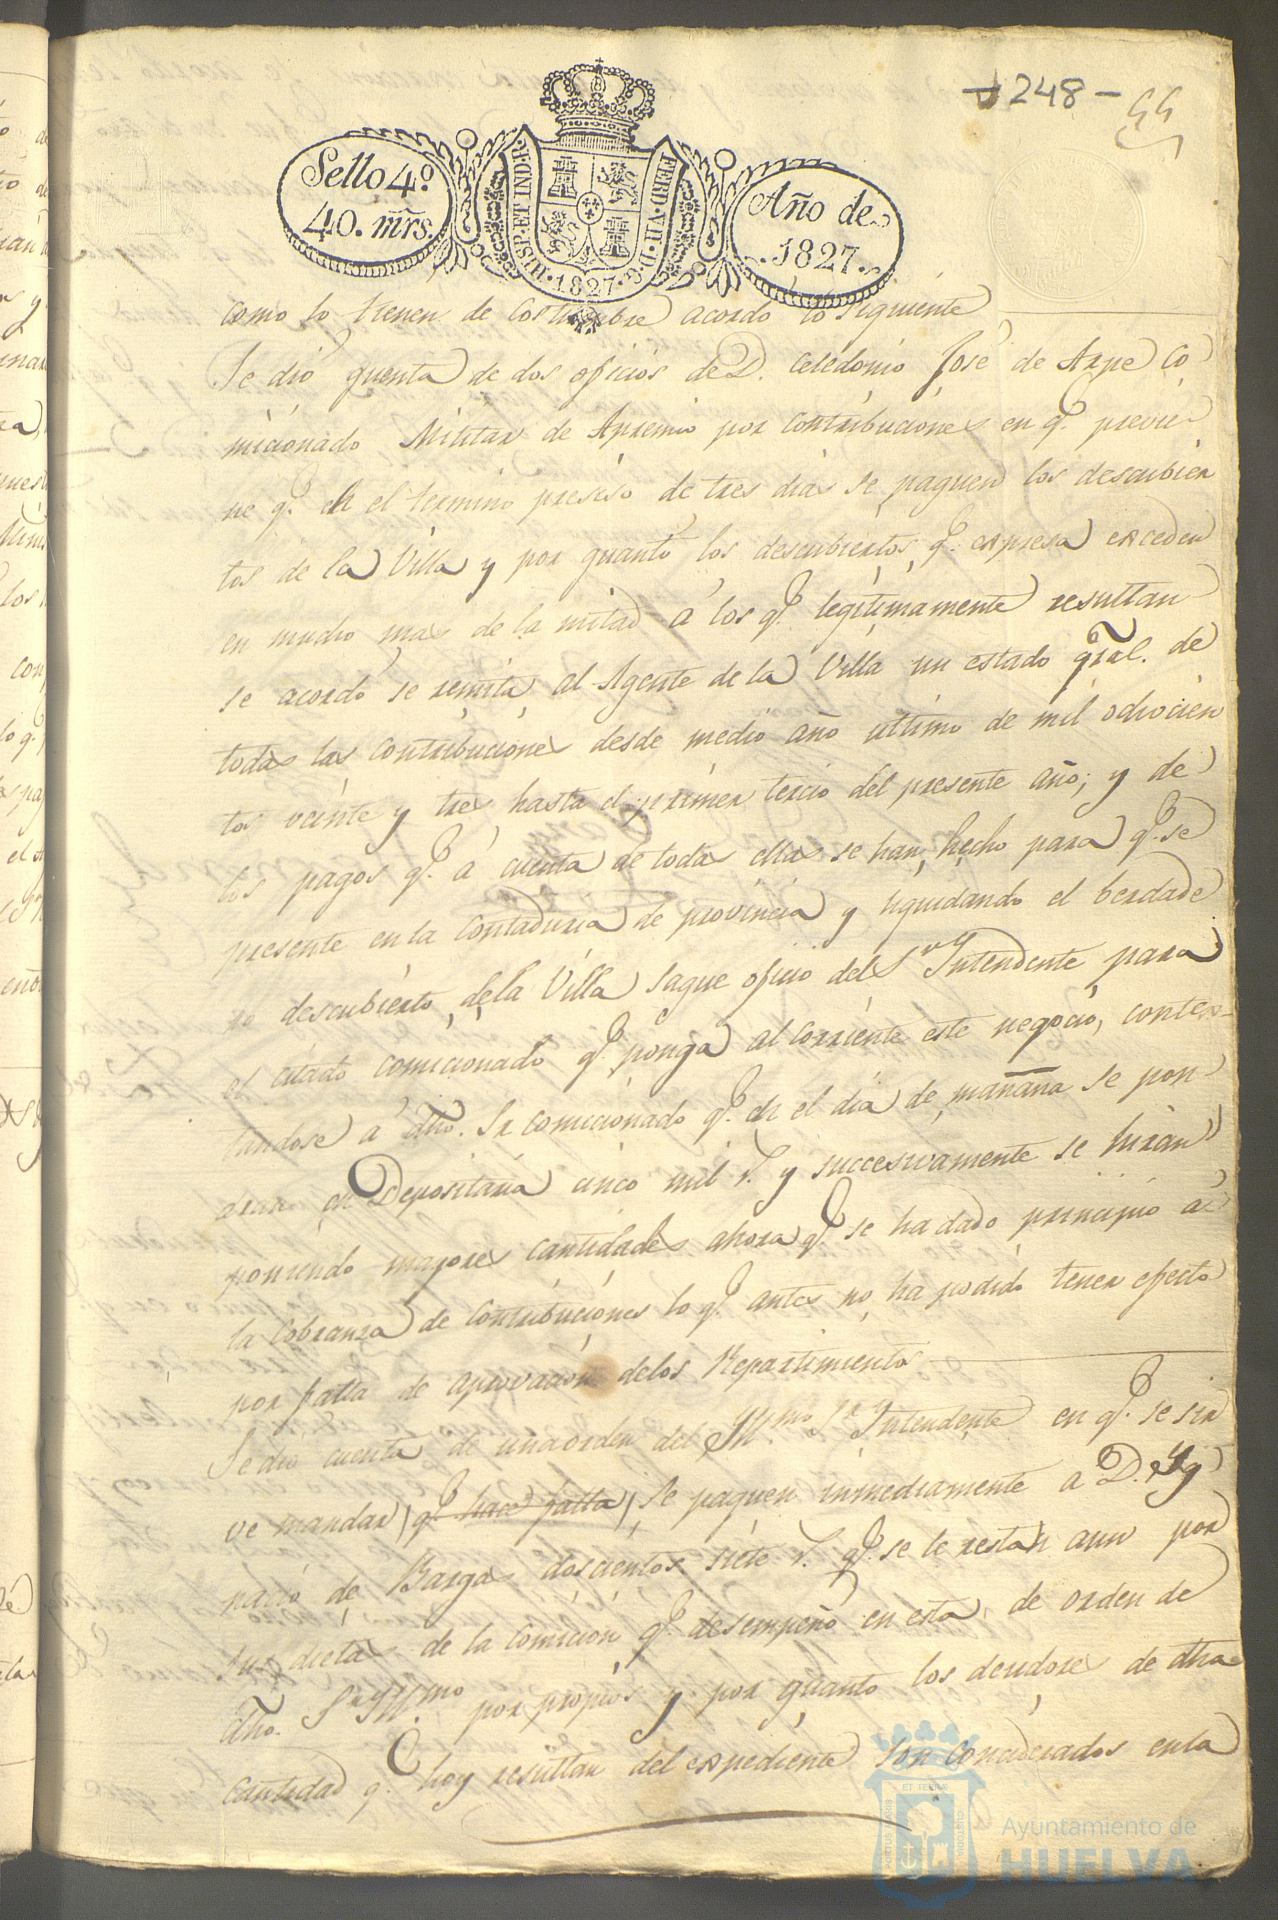 248 -
55
Sello 4º
40. mrs.
HISP. ET IND. R.
FERD. VII. D. G.
1827
Año de
1827.
como lo tienen de costumbre acordó lo siguiente
Se dió quenta de dos oficios de D. Celedonio José de Arpe Co
micionado Militar de Apremio por contribuciones en q.e previe
ne q.e en el termino presiso de tres dias se paguen los descubier
tos de la Villa y por quanto los descubiertos q.e expresa exceden
en mucho mas de la mitad á los q.e legitimamente resultan
se acordó se remita al Agente de la Villa un estado gral. de
todas las contribuciones desde medio año ultimo de mil ochocien
tos veinte y tres hasta el primer tercio del presente año; y de
los pagos q.e á cuenta de todas ellas se han hecho para q.e se
presente en la Contaduria de provincia y liquidando el berdade
ro descubierto de la Villa saque oficio del S.or Yntendente para
el citado comicionado q.e ponga al corriente este negocio, contes
tandose á dho. Sr comicionado q.e en el dia de mañana se pon
dran en Depositaria cinco mil r.s y succesivamente se hirán
poniendo mayores cantidades ahora q.e se ha dado principio á
la cobranza de contribuciones lo q.e antes no ha podido tener efecto
por falta de aprovacion de los Repartimientos
Se dió cuenta de una orden del Yll.mo Sr Yntendente en q.e se sir
ve mandar (q.e hace falta) se paguen inmediamente a D. Yg
nacio de Bargas doscientos siete r.s q.e se le restan aun por
sus dietas de la comicion q.e desempeñó en esta de orden de
dho. S.or Yll.mo por propios y por quanto los deudores de dha
cantidad q.e hoy resultan del expediente son considerados en la
Ayuntamiento de
HUELVA